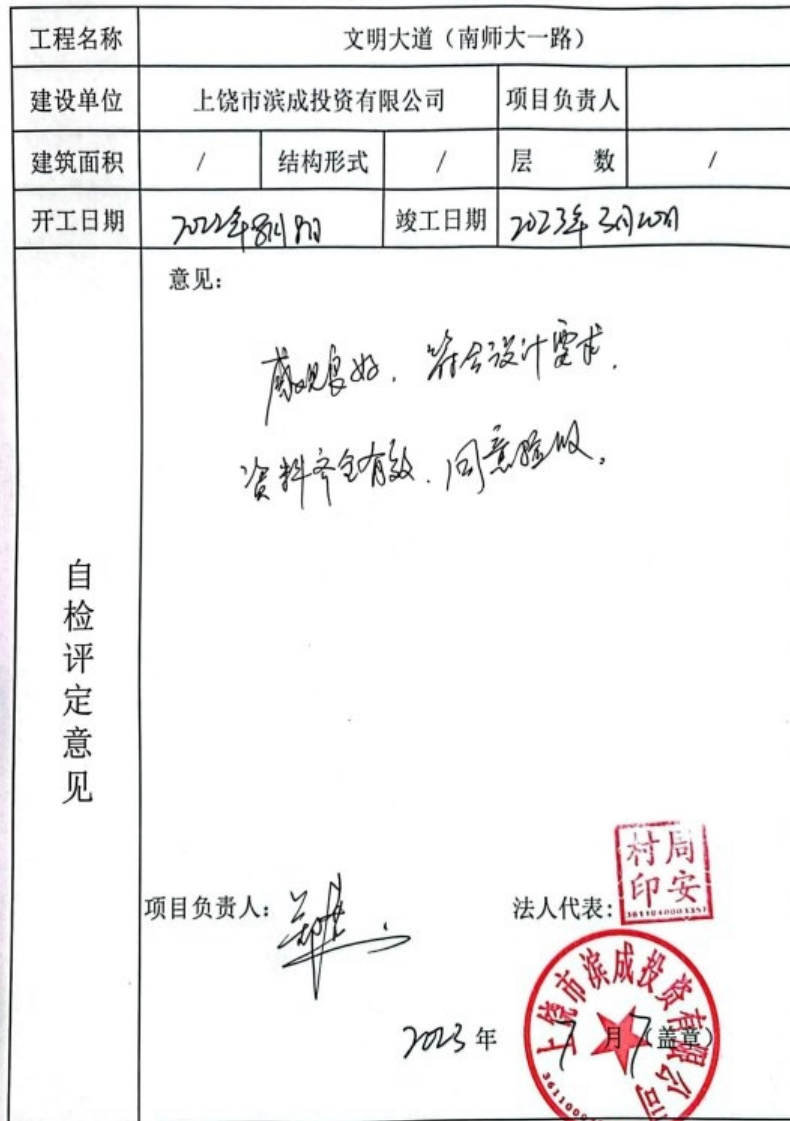 工程名称 文明大道（南师大一路）
建设单位 上饶市滨成投资有限公司 项目负责人
建筑面积 / 结构形式 / 层 数 /
开工日期 2022年8月8日 竣工日期 2023年3月20日
自检评定意见
意见：
感观良好，符合设计要求，
资料齐全有效，同意验收。
项目负责人： 法人代表：
周安村印
2023年7月7（盖章）
上饶市滨成投资有限公司